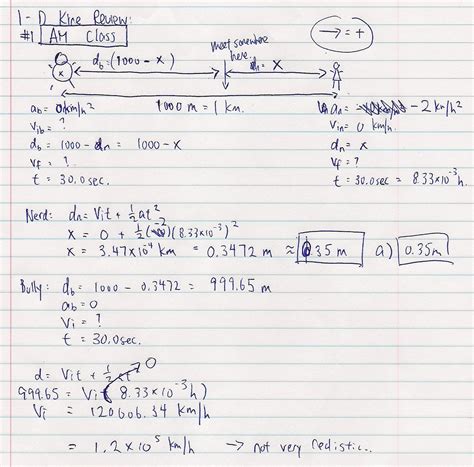 1-D Kine Review:
#1 AM Class → = +
d_b = (1000 - x) meet somewhere here. d_n = x
1000 m = 1 km.
a_b = 0 km/h² a_n = -2 km/h²
V_ib = ? V_in = 0 km/h.
d_b = 1000 - d_n = 1000 - x d_n = x
V_f = ? V_f = ?
t = 30.0 sec. t = 30.0 sec = 8.33×10⁻³ h
Nerd: d_n = Vit + ½at²
x = 0 + ½(-2)(8.33×10⁻³)²
x = 3.47×10⁴ km = 0.3472 m ≈ 0.35 m a) 0.35m
Bully: d_b = 1000 - 0.3472 = 999.65 m
a_b = 0
V_i = ?
t = 30.0 sec.
d = Vit + ½at² 0
999.65 = Vi (8.33×10⁻³ h)
Vi = 120006.34 km/h
= 1.2×10⁵ km/h → not very realistic..